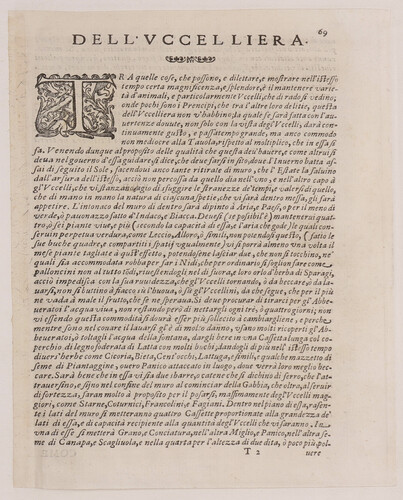 69
DELL'VCCELLIERA.
TRA quelle cose, che possono, e dilettare, e mostrare nell'istesso
tempo certa magnificenza, e splendore, è il mantenere varie-
tà d'animali, e particolarmente Vccelli, che di rado si vedino;
onde pochi sono i Prencipi, che tra l'altre loro delitie, questa
dell'Vccelliera non v'habbino, la quale se sarà fatta con l'au-
uertenze douute, non solo con la vista degl'Vccelli, darà con-
tinuamente gusto, e passatempo grande, ma anco commodo
non mediocre alla Tauola, rispetto al moltiplico, che in essa si
fa. Venendo dunque al proposito delle qualità che questa deu'hauere, e come altrui si
deua nel gouerno d'essa guidare, si dice, che deue farsi in sito, doue l'Inuerno batta as-
sai di seguito il Sole, facendoui anco tante ritirate di muro, che l'Estate la saluino
dall'arsura dell'istesso, acciò non percossa da quello dia nell'vno, e nell'altro capo à
gl'Vccelli, che vi stanno, agio di sfuggire le stranezze de' tempi, e valersi di quello,
che di mano in mano la natura di ciascuna spetie, che vi sarà dentro messa, gli sarà
appetire. L'imonaco del muro di dentro sarà dipinto à Aria, e Paesi, o per il meno di
verde, ò pauonazzo fatto d'Indaco, e Biacca. Deuesi (se possibil'è) mantenerui quat-
tro, ò sei piante viue, e più (secondo la capacità di essa) e l'aria che gode, le quali con-
seruin perpetua verdura, come Leccio, Alloro, ò simili, non potendosi questo, (fatto le
sue buche quadre, e compartiti i spatij vgualmente) vi si porrà almeno vna volta il
mese piante tagliate à quest'effetto, potendosene lasciar due, che non si tocchino, ne'
quali sia accommodata robba per far i Nidi; che per ordinario si sogliono fare come
palloncini non al tutto tondi, riuestendogli nel di fuora, e loro orlo d'herba di Sparagi,
acciò impedisca con la sua ruuidezza, che gl'Vccelli tornando, ò da beccare, ò da la-
uarsi, non si buttino à fiacco sù l'huoua, ò sù gl'Vccellini, dà che segue, che per il più
ne vada à male il frutto, che se ne speraua. Si deue procurar di tirarci per gl'Abbe-
ueratori l'acqua viua, non restando però di nettargli ogni tre, ò quattro giorni; non
vi essendo questa commodità si dourà esser più sollecito à cambiargliene, e perche
mentre sono nel couare il lauarsi gl'è di molto danno, vsano molti ricoprirli gl'Ab-
beueratoi, ò toltogli l'acqua della fontana, dargli bere in vna Cassetta lunga col co-
perchio di legno foderata di Latta con molti buchi; dandogli di più nell'istesso tempo
diuers'herbe come Cicoria, Bieta, Cent'occhi, Lattuga, e simili, e qualche mazzetto di
seme di Piantaggine, ouero Panico attaccato in luogo, doue verrà loro meglio bec-
care. Sarà bene che in essa vi sia due sbarre, ò catene che si dichino di ferro, che l'at-
trauersino, e sijno nel confine del muro al cominciar della Gabbia, che oltre, al seruir
di fortezza, saran molto à proposito per il posarsi, massimamente degl'Vccelli mag-
giori, come Starne, Coturnici, Francolini, e Fagiani. Dentro nel piano di essa, rasen-
te i lati del muro si metteranno quattro Cassette proportionate alla grandezza de'
lati di essa, e di capacità recipiente alla quantità degl'Vccelli che vi saranno. In v-
vna di esse si metterà Grano, e Conciatura, nell'altra Miglio, e Panico, nell'altra se-
me di Canapa, e Scagliuola, e nella quarta per l'altezza di due dita, ò poco più, pol-
T 2
uere